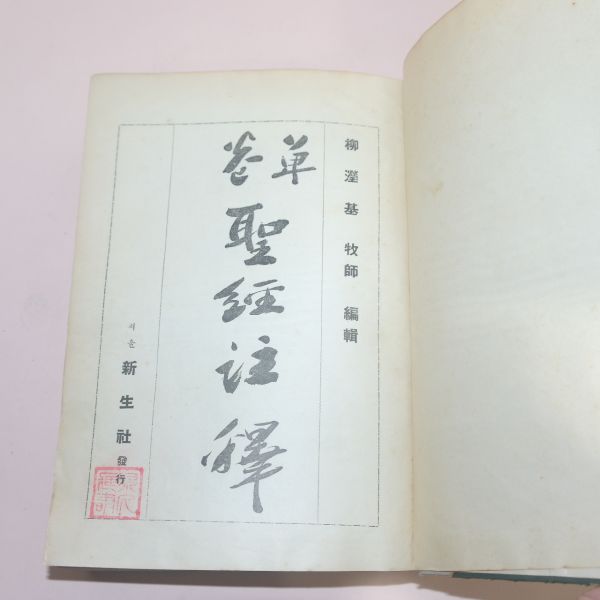 柳瀅基 牧師 編輯
單卷
聖經註釋
서울 新生社 發行